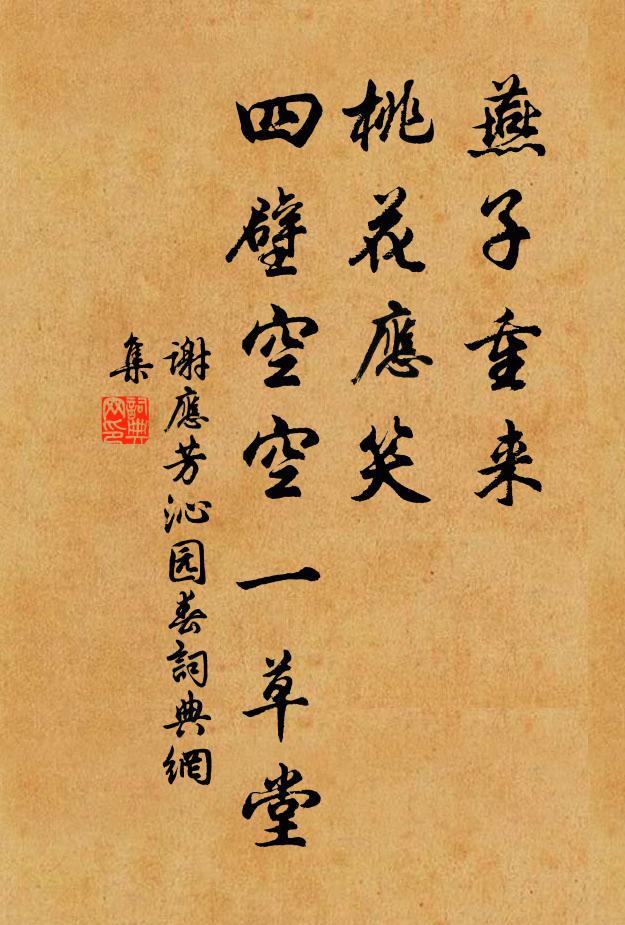 燕子重来
桃花應笑
四壁空空一草堂
谢應芳沁园春詞典網
集
詞典
网印